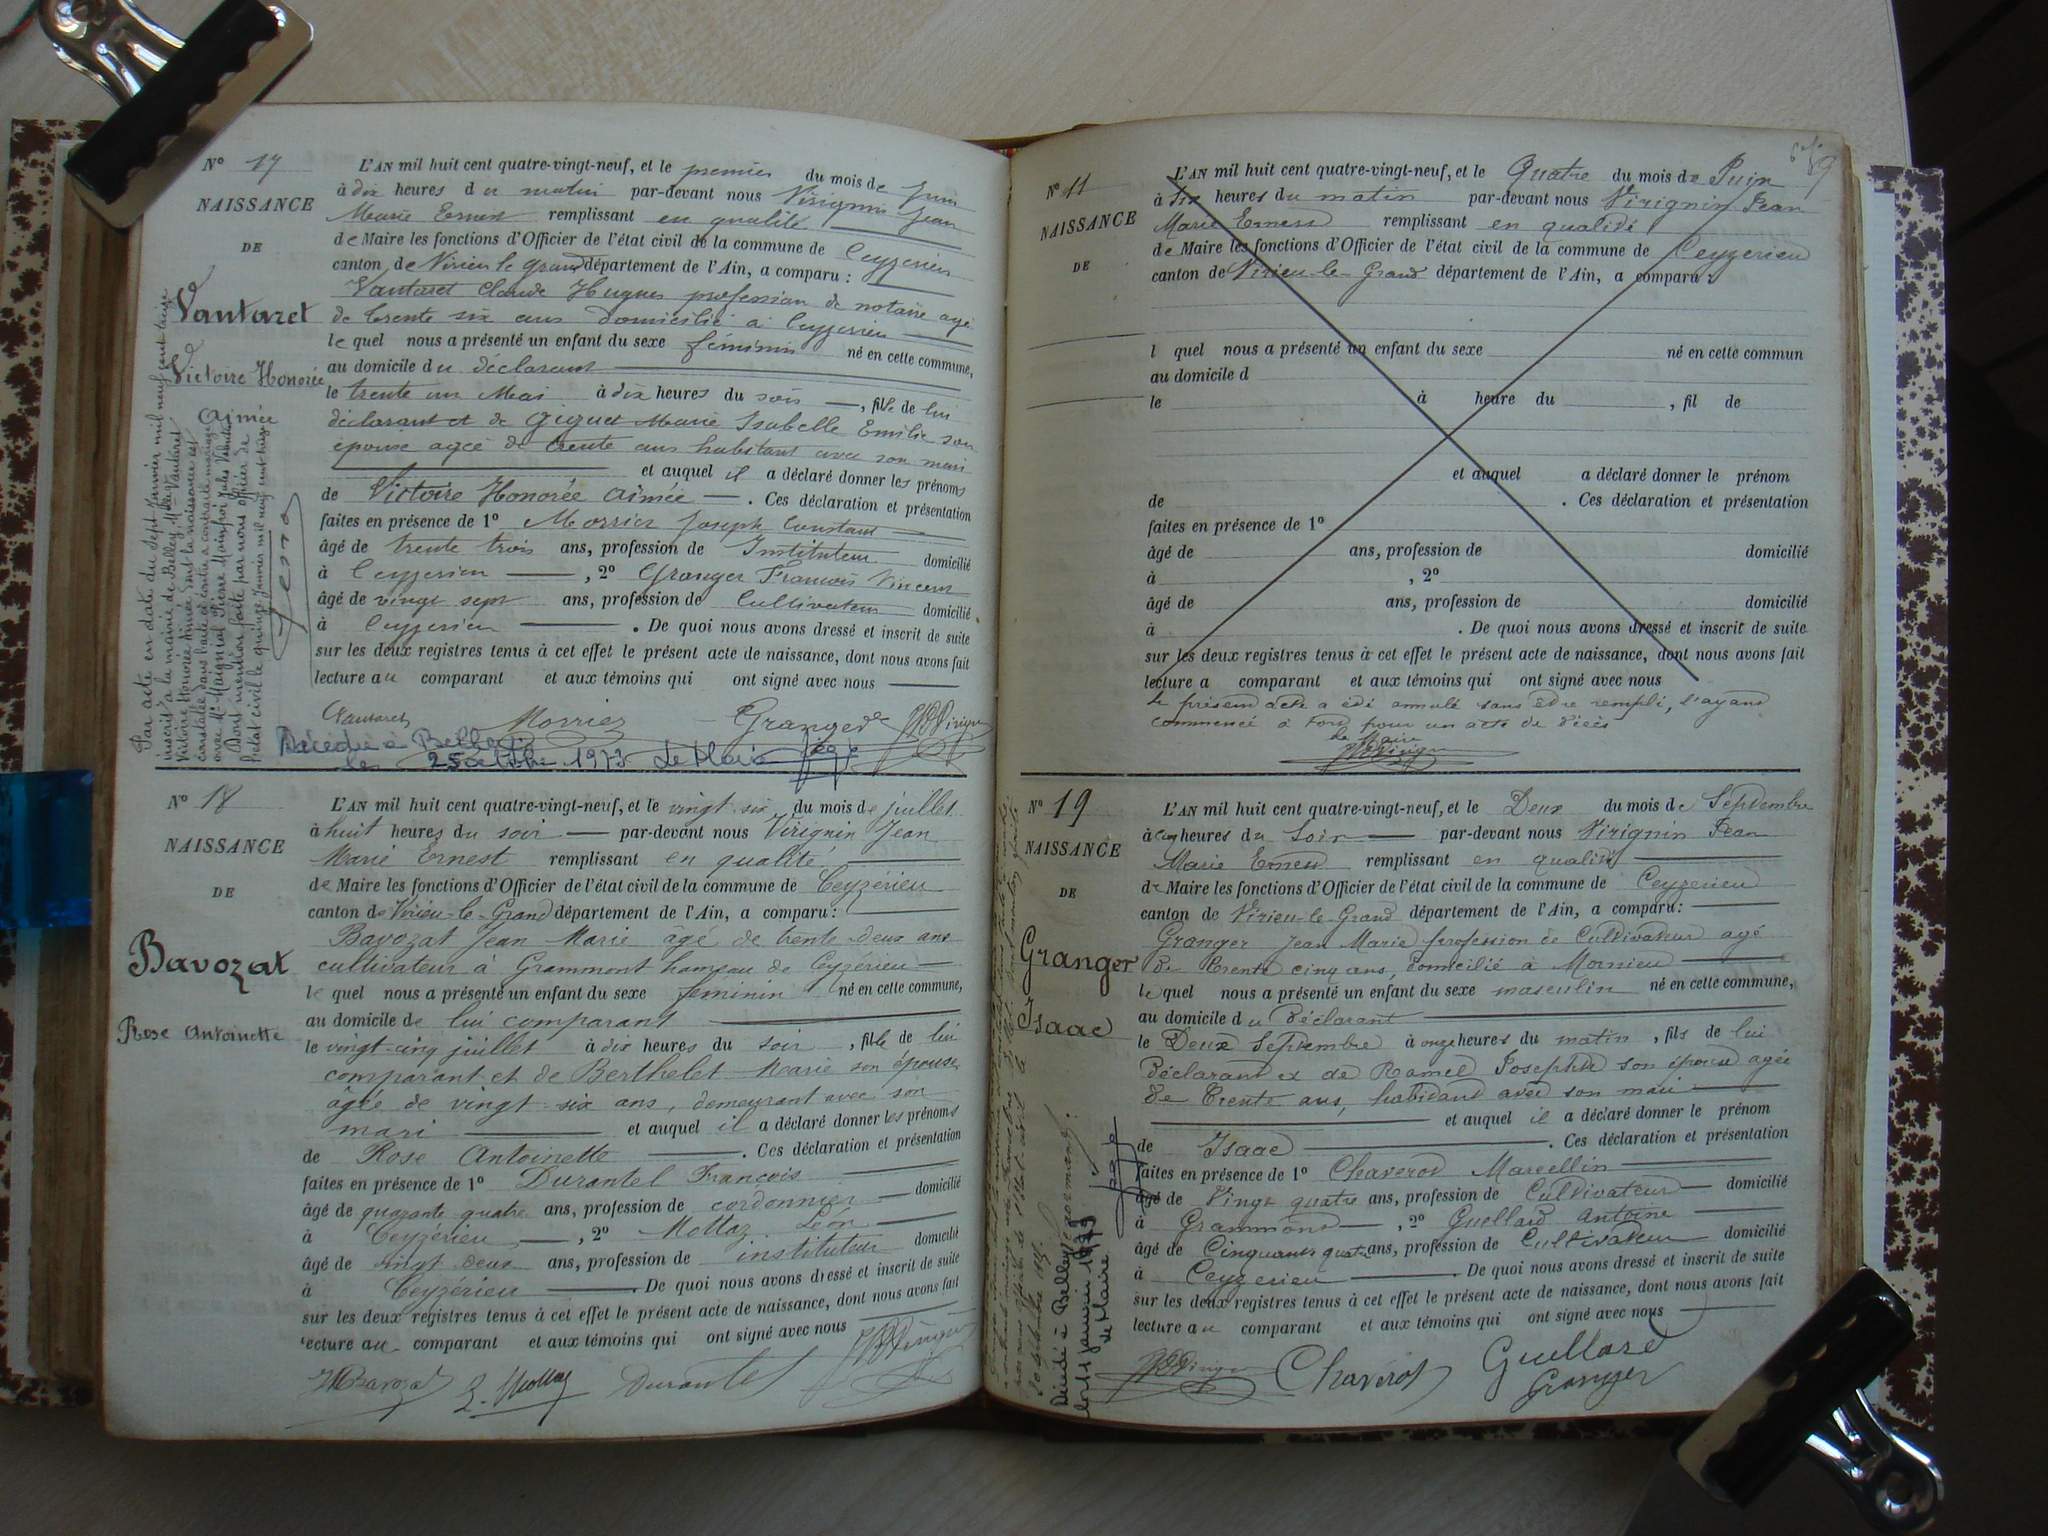 N° 17
NAISSANCE
DE
Vautaret
Victoire Honorée
Aimée
L'AN mil huit cent quatre-vingt-neuf, et le premier du mois de Juin
à dix heures du matin par-devant nous Virignin Jean
Marie Ernest remplissant en qualité
de Maire les fonctions d'Officier de l'état civil de la commune de Ceyzerieu
canton de Virieu le grand département de l'Ain, a comparu :
Vautaret Claude Hugues profession de notaire agé
de trente six ans domicilié à Ceyzerieu
lequel nous a présenté un enfant du sexe féminin né en cette commune,
au domicile du déclarant
le trente un Mai à dix heures du soir, fille de lui
déclarant et de Giguet Marie Isabelle Emilie son
épouse agée de trente ans habitant avec son mari
et auquel il a déclaré donner les prénoms
de Victoire Honorée Aimée. Ces déclaration et présentation
faites en présence de 1° Morrier Joseph Constant
âgé de trente trois ans, profession de Instituteur domicilié
à Ceyzerieu, 2° Granger François Vincent
âgé de vingt sept ans, profession de Cultivateur domicilié
à Ceyzerieu. De quoi nous avons dressé et inscrit de suite
sur les deux registres tenus à cet effet le présent acte de naissance, dont nous avons fait
lecture au comparant et aux témoins qui ont signé avec nous
Vautaret Morrier Granger
Par acte en date du sept Janvier mil neuf cent treize
inscrit à la mairie de Belley, Mlle Vautaret
Victoire Honorée Aimée dont la naissance est
constatée dans l'acte ci-contre a contracté mariage
avec Mr Maignial Pierre Mainfroi Jules
Dont mention faite par nous officier de
l'état civil le quinze Janvier mil neuf cent treize
Décédée à Belley
le 25 octobre 1973 Le Maire
N° 18
NAISSANCE
DE
Bavozat
Rose Antoinette
L'AN mil huit cent quatre-vingt-neuf, et le vingt-six du mois de juillet
à huit heures du soir par-devant nous Virignin Jean
Marie Ernest remplissant en qualité
de Maire les fonctions d'Officier de l'état civil de la commune de Ceyzérieu
canton de Virieu-le-Grand département de l'Ain, a comparu :
Bavozat Jean Marie âgé de trente-deux ans
cultivateur à Grammont hameau de Ceyzérieu
lequel nous a présenté un enfant du sexe féminin né en cette commune,
au domicile de lui comparant
le vingt-cinq juillet à dix heures du soir, fille de lui
comparant et de Berthelet Marie son épouse
âgée de vingt-six ans, demeurant avec son
mari et auquel il a déclaré donner les prénoms
de Rose Antoinette. Ces déclaration et présentation
faites en présence de 1° Durantel François
âgé de quarante quatre ans, profession de cordonnier domicilié
à Ceyzérieu, 2° Mollaz Léon
âgé de vingt deux ans, profession de instituteur domicilié
à Ceyzérieu. De quoi nous avons dressé et inscrit de suite
sur les deux registres tenus à cet effet le présent acte de naissance, dont nous avons fait
lecture au comparant et aux témoins qui ont signé avec nous
JMBavozat L. Mollaz Durantel
N° 11
NAISSANCE
DE
L'AN mil huit cent quatre-vingt-neuf, et le Quatre du mois de Juin
à Six heures du matin par-devant nous Virignin Jean
Marie Ernest remplissant en qualité
de Maire les fonctions d'Officier de l'état civil de la commune de Ceyzerieu
canton de Virieu-le-Grand département de l'Ain, a comparu :
l quel nous a présenté un enfant du sexe né en cette commun
au domicile d
le à heure du , fil de
et auquel a déclaré donner le prénom
de . Ces déclaration et présentation
faites en présence de 1°
âgé de ans, profession de domicilié
à , 2°
âgé de ans, profession de domicilié
à . De quoi nous avons dressé et inscrit de suite
sur les deux registres tenus à cet effet le présent acte de naissance, dont nous avons fait
lecture a comparant et aux témoins qui ont signé avec nous
Le présent acte a été annulé sans être rempli, l'ayant
commencé à tort pour un acte de décès
Le Maire
N° 19
NAISSANCE
DE
Granger
Isaac
L'AN mil huit cent quatre-vingt-neuf, et le Deux du mois de Septembre
à cinq heures du Soir par-devant nous Virignin Jean
Marie Ernest remplissant en qualité
de Maire les fonctions d'Officier de l'état civil de la commune de Ceyzerieu
canton de Virieu-le-Grand département de l'Ain, a comparu :
Granger Jean Marie profession de Cultivateur agé
de Trente cinq ans, domicilié à Mornieu
lequel nous a présenté un enfant du sexe masculin né en cette commune,
au domicile du Déclarant
le Deux Septembre à onze heures du matin, fils de lui
Déclarant et de Ramel Josephte son épouse agée
de Trente ans, habitant avec son mari
et auquel il a déclaré donner le prénom
de Isaac. Ces déclaration et présentation
faites en présence de 1° Chaverot Marcellin
âgé de Vingt quatre ans, profession de Cultivateur domicilié
à Grammont, 2° Guellard Antoine
âgé de Cinquante quatre ans, profession de Cultivateur domicilié
à Ceyzerieu. De quoi nous avons dressé et inscrit de suite
sur les deux registres tenus à cet effet le présent acte de naissance, dont nous avons fait
lecture au comparant et aux témoins qui ont signé avec nous
Chavérot Guellard
Granger
Décédé à Belley
le 11 janvier 1979
Le Maire